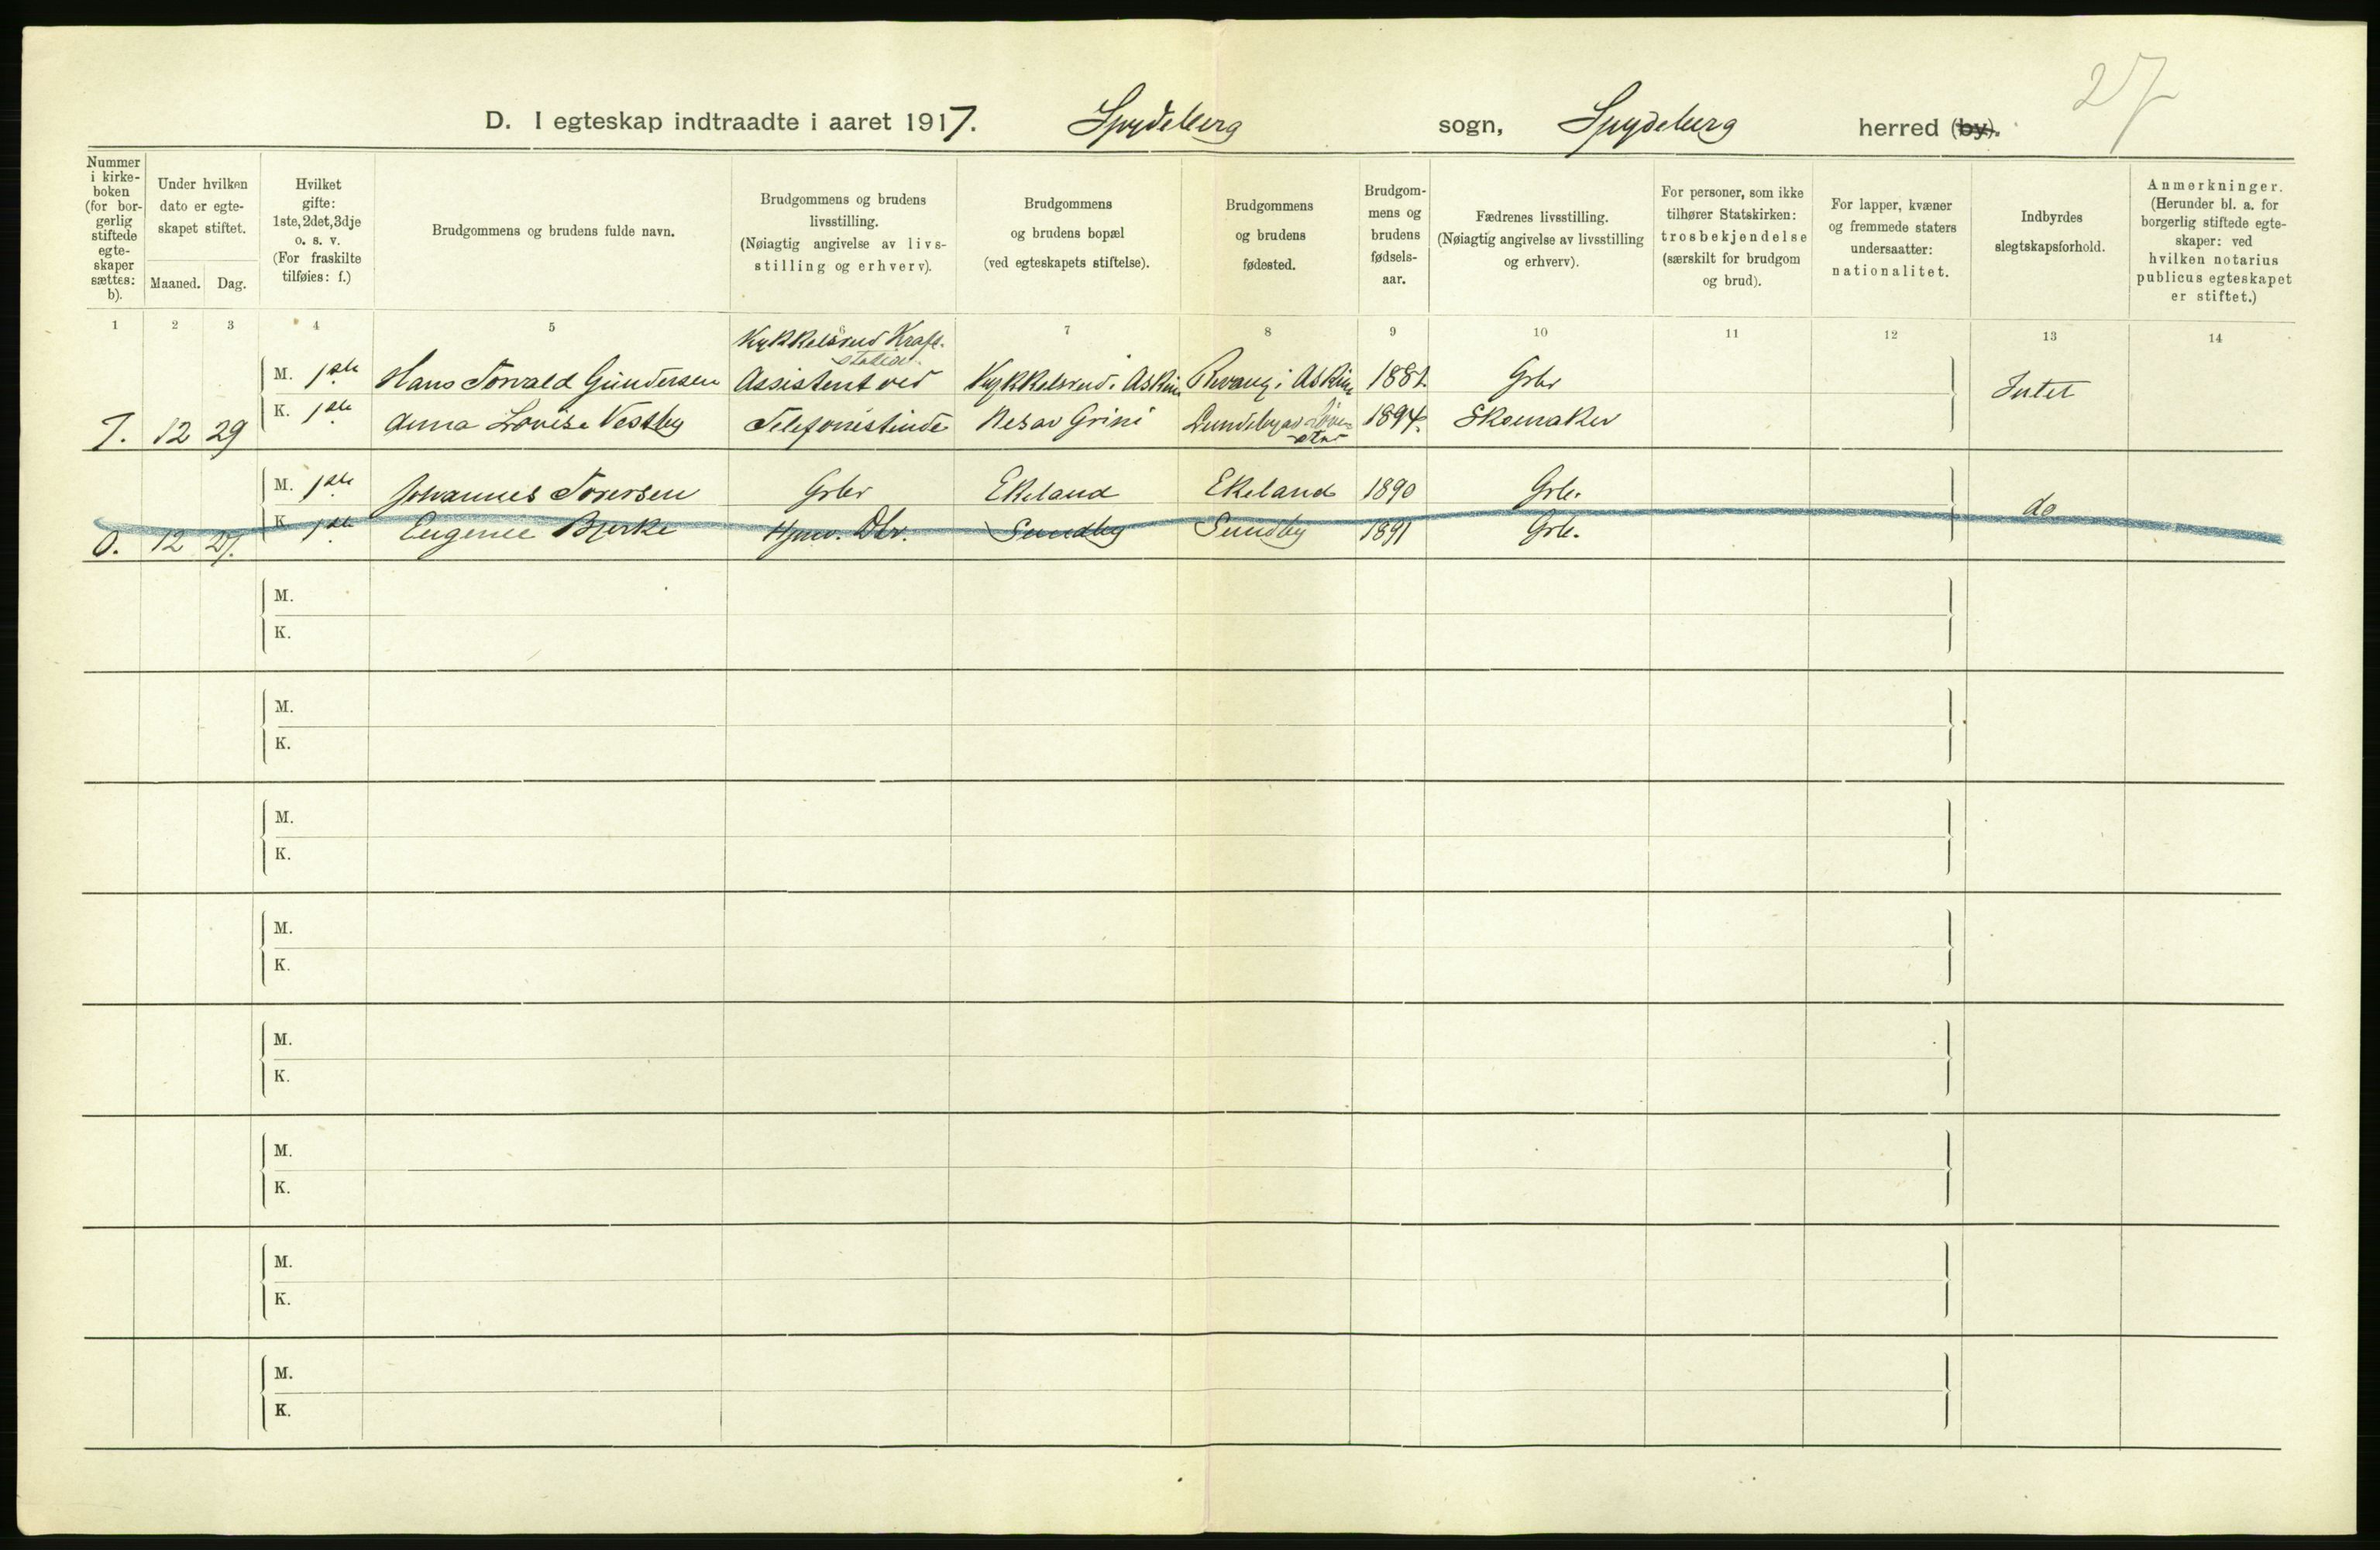 27
D. I egteskap indtraadte i aaret 1917. Spydeberg sogn, Spydeberg herred (by).
Nummer i kirke-boken (for bor-gerlig stiftede egte-skaper sættes: b).
Under hvilken dato er egte-skapet stiftet.
Maaned. Dag.
Hvilket gifte: 1ste, 2det, 3dje o. s. v. (For fraskilte tilføies: f.)
Brudgommens og brudens fulde navn.
Brudgommens og brudens livsstilling. (Nøiagtig angivelse av livs-stilling og erhverv).
Brudgommens og brudens bopæl (ved egteskapets stiftelse).
Brudgommens og brudens fødested.
Brudgom-mens og brudens fødsels-aar.
Fædrenes livsstilling. (Nøiagtig angivelse av livsstilling og erhverv).
For personer, som ikke tilhører Statskirken: trosbekjendelse (særskilt for brudgom og brud).
For lapper, kvæner og fremmede staters undersaatter: nationalitet.
Indbyrdes slegtskapsforhold.
Anmerkninger. (Herunder bl. a. for borgerlig stiftede egte-skaper: ved hvilken notarius publicus egteskapet er stiftet.)
1 2 3 4 5 6 7 8 9 10 11 12 13 14
Kykkelsrud Kraft-
station.
M. 1ste Hans Torvald Gundersen Assistent ved Kykkelsrud i Askim i Askim 1881 Grbr Intet
7. 12 29 K. 1ste Anna Lovise Vestby Telefonistinde Nesav Grini Lundebyav 1894. Skomaker
M. 1ste Johannes Toversen Grbr Ekeland Ekeland 1890 Grb. do
0. 12 27. K. 1ste Eugenee Bjerke Hjmv. Dtr. Sundby Sundby 1891 Grb.
M.
K.
M.
K.
M.
K.
M.
K.
M.
K.
M.
K.
M.
K.
M.
K.